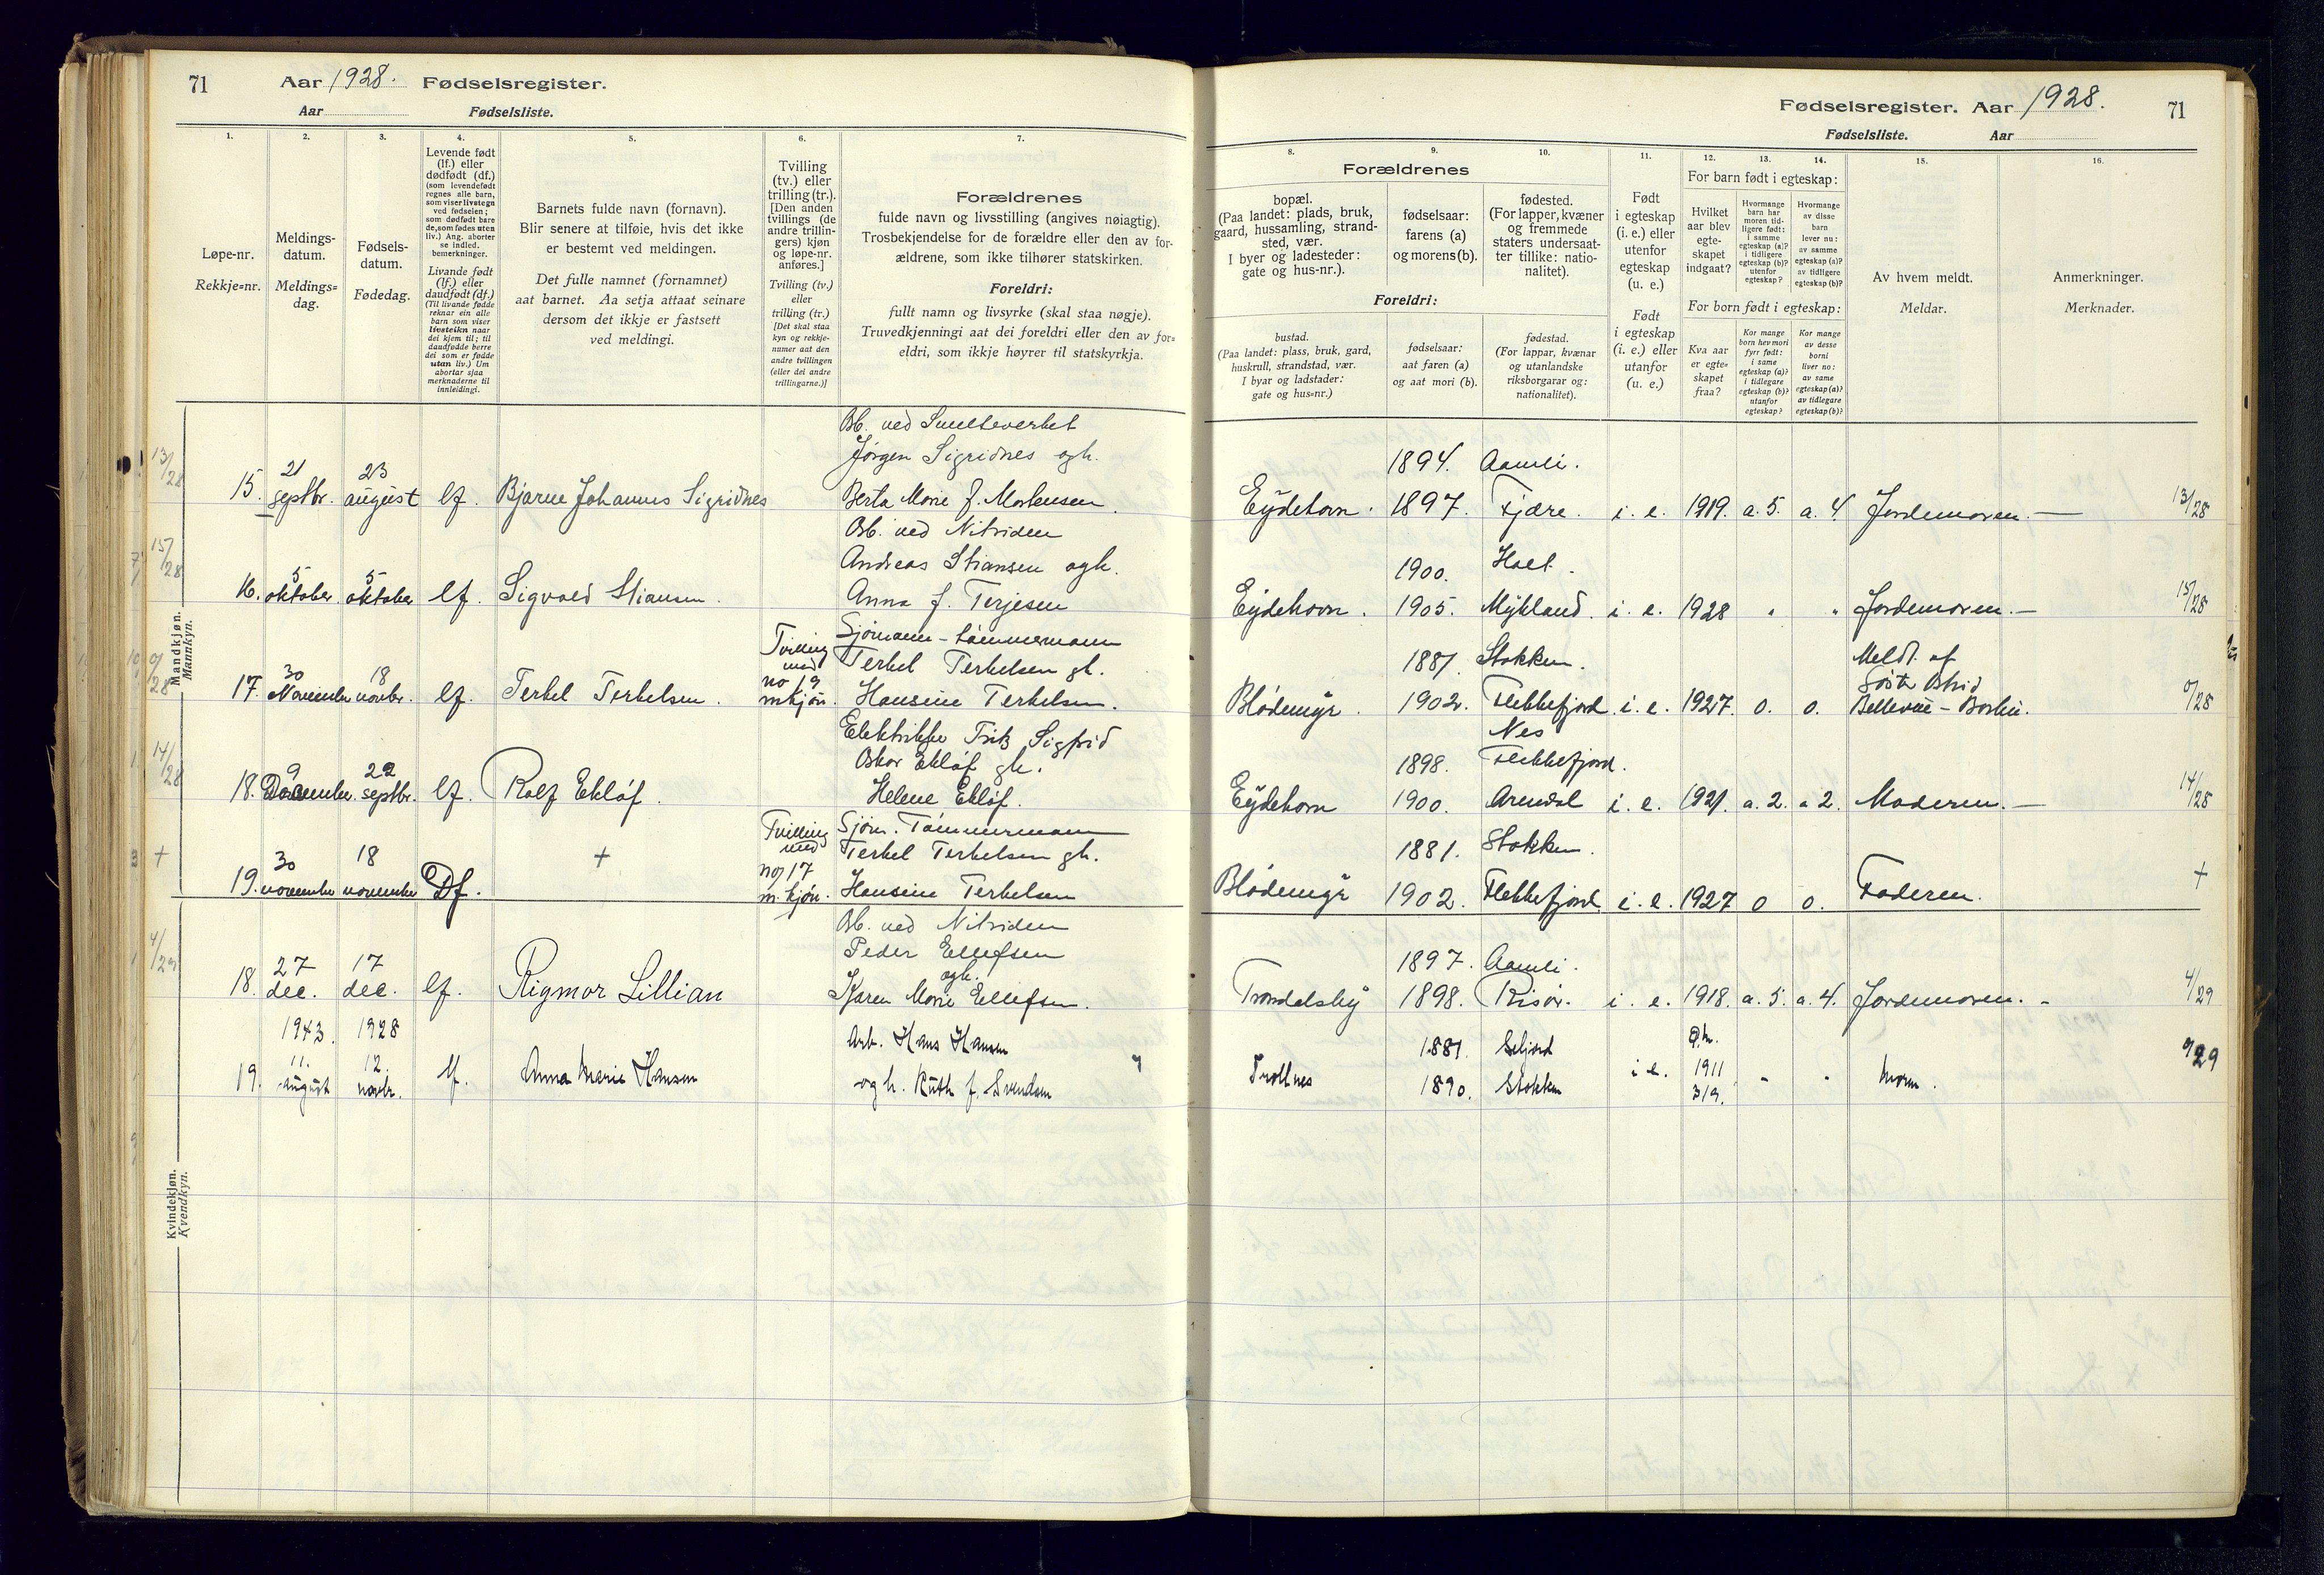 71 Aar 1928. Fødselsregister.
Aar Fødselsliste.
Fødselsregister. Aar 1928. 71
Fødselsliste. Aar
1.
Løpe-nr.
Rekkje-nr.
2.
Meldings-
datum.
Meldings-
dag.
3.
Fødsels-
datum.
Fødedag.
4.
Levende født
(lf.) eller
dødfødt (df.)
(som levendefødt
regnes alle barn,
som viser livstegn
ved fødselen;
som dødfødt bare
de, som fødes uten
liv.) Ang. aborter
se indled.
bemerkninger.
Livande født
(lf.) eller
daudfødt (df.)
(Til livande fødde
reknar ein alle
barn som viser
livsteikn naar
dei kjem til; til
daudfødde berre
dei som er fødde
utan liv.) Um
abortar sjaa
merknaderne til
innleidingi.
5.
Barnets fulde navn (fornavn).
Blir senere at tilføie, hvis det ikke
er bestemt ved meldingen.
Det fulle namnet (fornamnet)
aat barnet. Aa setja attaat seinare
dersom det ikkje er fastsett
ved meldingi.
6.
Tvilling
(tv.) eller
trilling (tr.).
[Den anden
tvillings (de
andre trillin-
gers) kjøn
og løpe-nr.
anføres.]
Tvilling (tv.)
eller
trilling (tr.)
[Det skal staa
kyn og rekkje-
numer aat den
andre tvillingen
(eller dei andre
trillingarne.)]
7.
Forældrenes
fulde navn og livsstilling (angives nøiagtig).
Trosbekjendelse for de forældre eller den av for-
ældrene, som ikke tilhører statskirken.
Foreldri:
fullt namn og livsyrke (skal staa nøgje).
Truvedkjenningi aat dei foreldri eller den av for-
eldri, som ikkje høyrer til statskyrkja.
8.
Forældrenes
bopæl.
(Paa landet: plads, bruk,
gaard, hussamling, strand-
sted, vær.
I byer og ladesteder:
gate og hus-nr.).
Foreldri:
bustad.
(Paa landet: plass, bruk, gard,
huskrull, strandstad, vær.
I byar og ladstader:
gate og hus-nr.)
9.
fødselsaar:
farens (a)
og morens (b).
fødselsaar:
aat faren (a)
og aat mori (b).
10.
fødested.
(For lapper, kvæner
og fremmede
staters undersaat-
ter tillike: natio-
nalitet).
fødestad.
(For lappar, kvænar
og utanlandske
riksborgarar og:
nationalitet).
11.
Født
i egteskap
(i. e.) eller
utenfor
egteskap
(u. e.)
Født
i egteskap
(i. e.) eller
utanfor
(u. e.)
12.
For barn født i egteskap:
Hvilket
aar blev
egte-
skapet
indgaat?
For born født i egteskap:
Kva aar
er egte-
skapet
fraa?
13.
Hvormange
barn har
moren tid-
ligere født:
i samme
egteskap (a)?
i tidligere
egteskap (b)?
utenfor
egteskap?
Kor mange
born hev mori
fyrr født:
i same
egteskap (a)?
i tidlegare
egteskap (b)?
utanfor
egteskap?
14.
Hvormange
av disse
barn
lever nu:
av samme
egteskap (a)?
av tidligere
egteskap (b)?
Kor mange
av desse
borni
liver no:
av same
egteskap (a)?
av tidlegare
egteskap (b)?
15.
Av hvem meldt.
Meldar.
16.
Anmerkninger.
Merknader.
Mandkjøn.
Mannkyn.
13/28 15. 21 septbr. 23 august lf. Bjarne Johannes Sigridnes
Arb. ved Smelteverket
Jørgen Sigridnes ogh.
Berta Marie f. Mortensen.
Eydehavn. 1894. Aamli.
1897. Fjære. i. e. 1919. a. 5. a. 4. Jordemoren. — 13/28
15/28 16. 5 oktober. 5 oktober lf. Sigvald Stiansen.
Arb. ved Nitriden
Andreas Stiansen ogh.
Anna f. Terjesen
Eydehavn. 1900. Holt.
1905. Mykland. i. e. 1928 " " Jordemoren. — 15/28
0/28 17. 30 November 18 novbr. lf. Terkel Terkelsen.
Tvilling med no 19 m kjøn.
Sjømann - tømmermann
Terkel Terkelsen gh.
Hansine Terkelsen.
Blødemyr. 1881 Stokken.
1902. Flekkefjord. i. e. 1927. 0. 0.
Meldt af
Søster Astrid
Bellevue -
0/28
14/28 18. 9 December. 22 septbr. lf. Rolf Ekløf.
Elektriker Fritz Sigfrid
Oskar Ekløf gh.
Helene Ekløf.
Eydehavn 1898. Nes Flekkefjord.
1900. Arendal i. e. 1921. a. 2. a 2. Moderen. — 14/28
+ 19. 30 november 18 november Df. +
Tvilling med no 17 m. kjøn.
Sjøm. Tømmermann
Terkel Terkelsen gh.
Hansine Terkelsen
Blødemyr 1881. Stokken.
1902. Flekkefjord i. e. 1927 0 0. Faderen. +
Kvindekjøn.
Kvendkyn.
4/29 18. 27 dec. 17 dec. lf. Rigmor Lillian
Arb. ved Nitriden
Peder Ellefsen
ogh.
Karen Marie Ellefsen.
Trondalsby 1897. Aamli.
1898. Risør. i. e. 1918. a. 5. a. 4. Jordemoren. - 4/29
19. 1943. 11. august 1928 12. novbr. lf. Anna Marie Hansen
Arb. Hans Hansen
og h. Ruth f. Svendsen
Trollnes 1881. Seljord
1890. Stokken i e. 1911 3/9. - - moren.
9/29